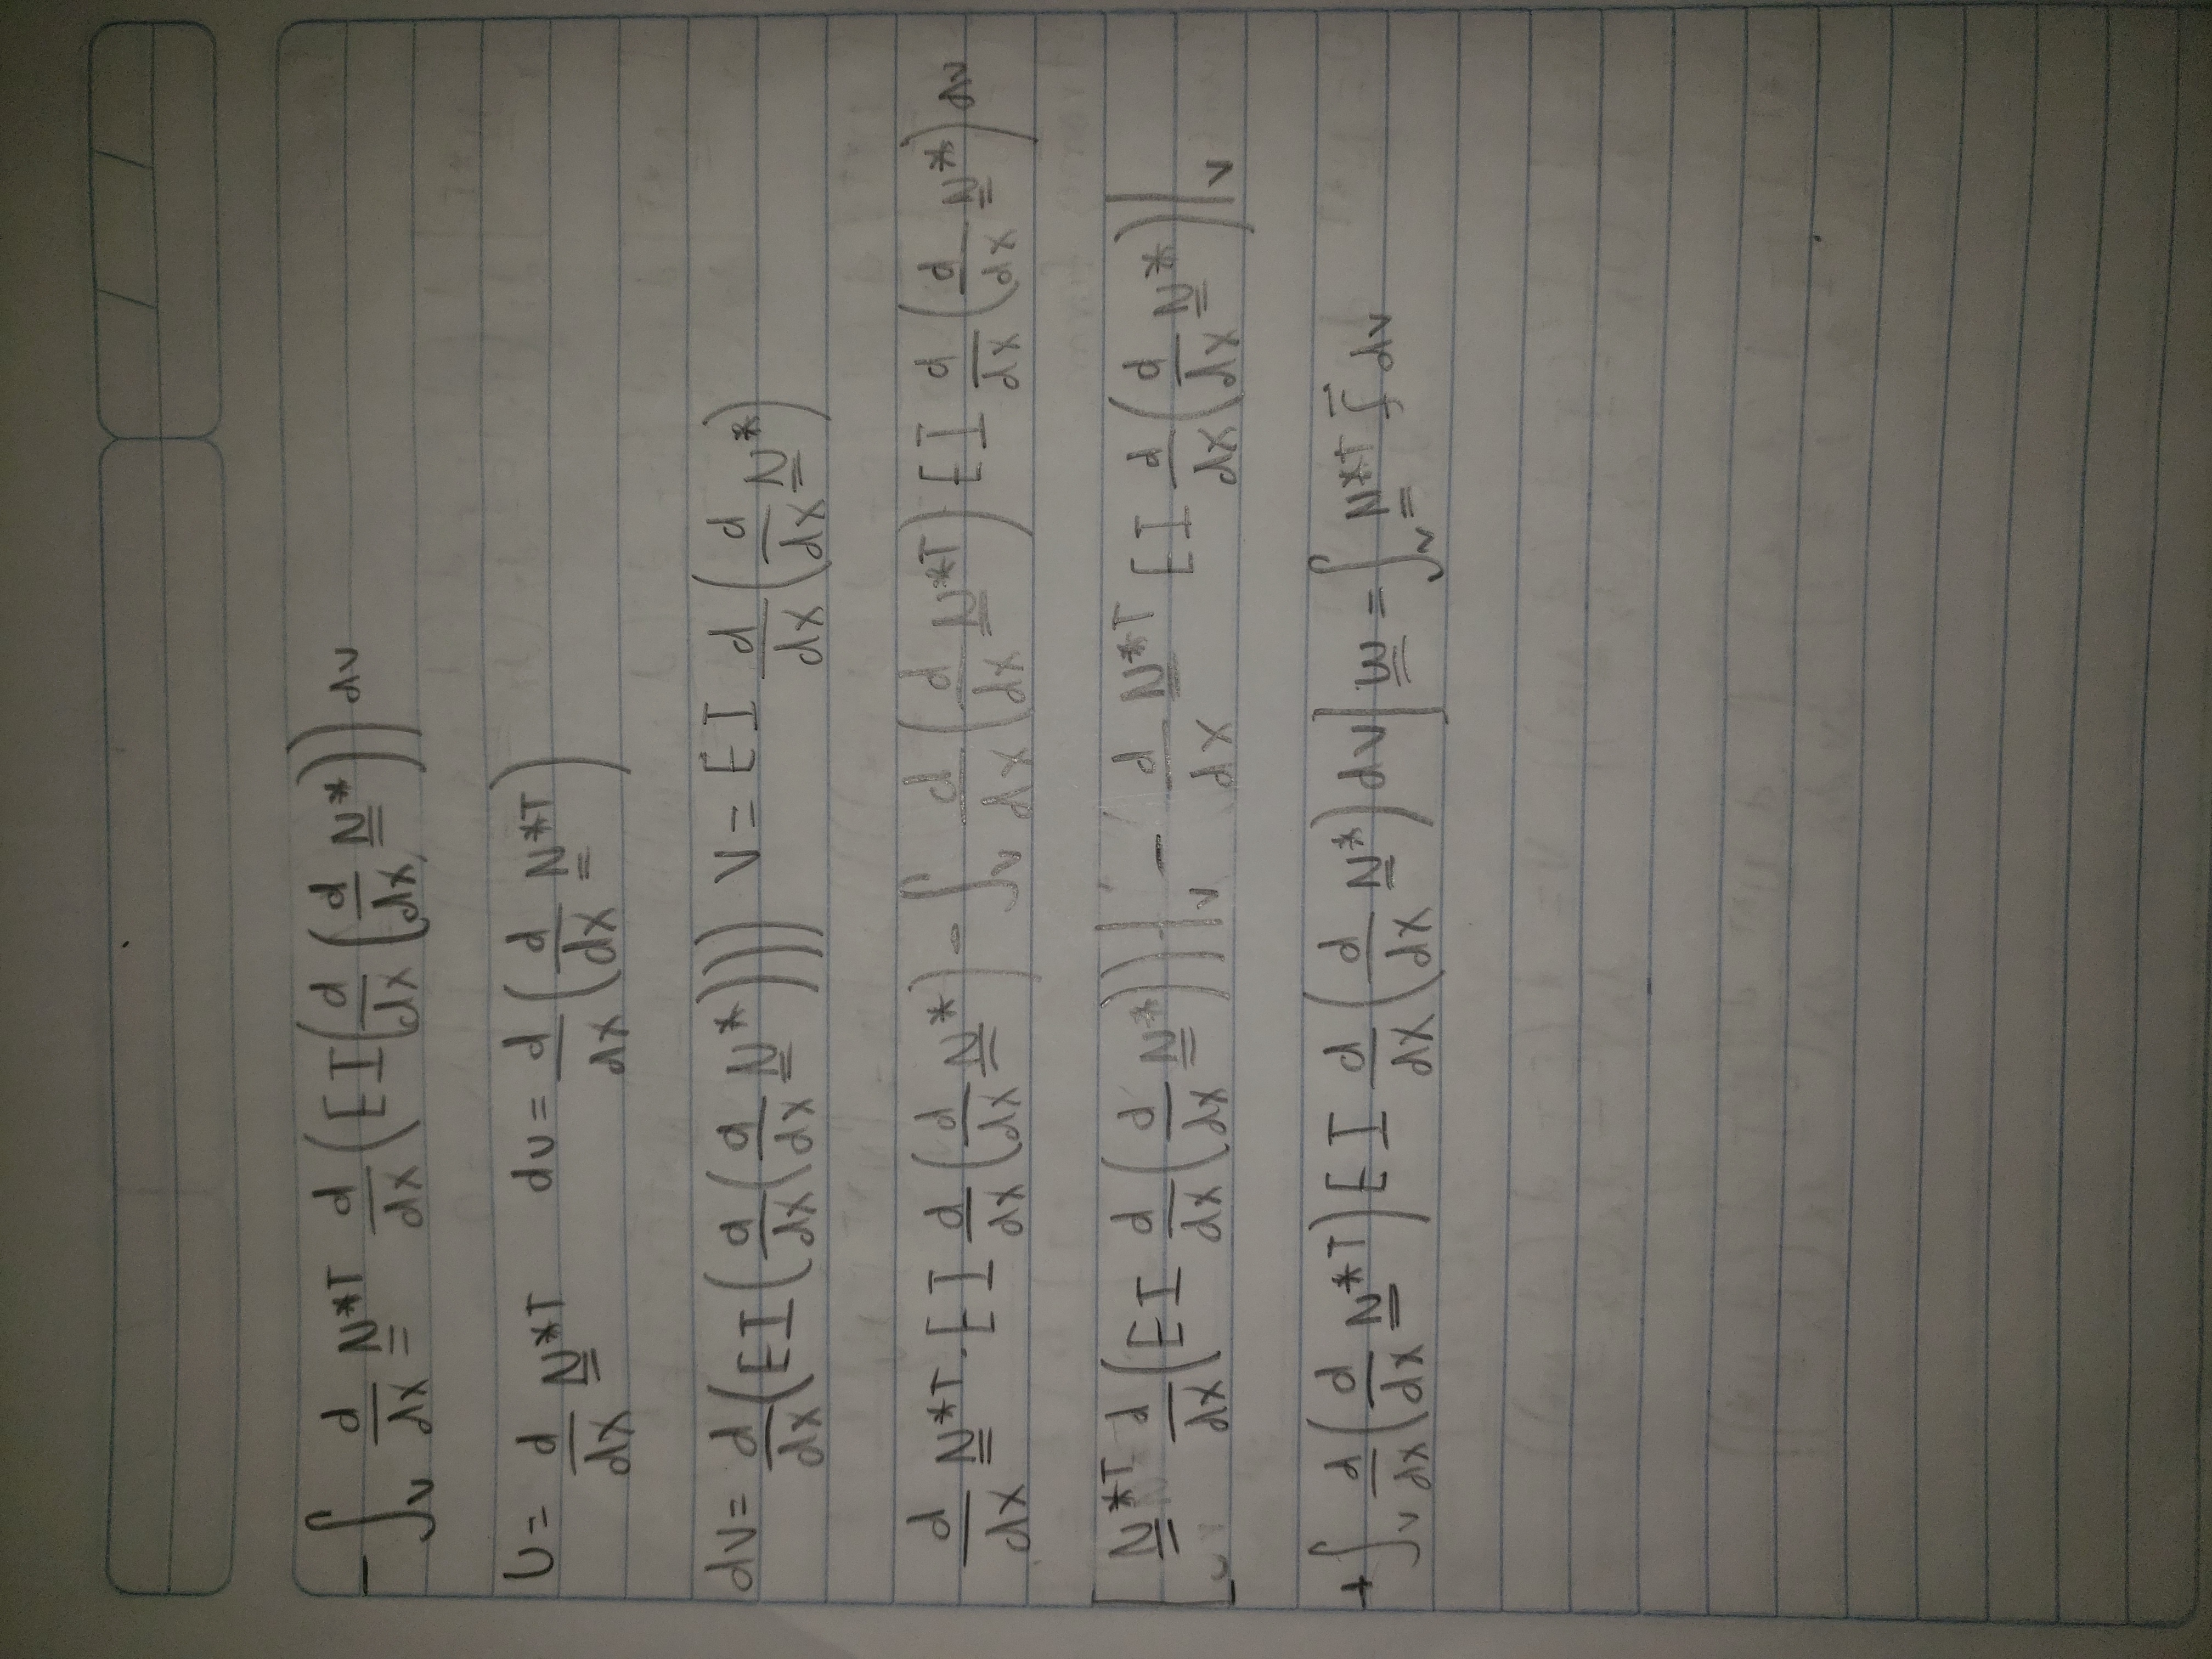 - ∫_V d/dx N̳*ᵀ d/dx (EI(d/dx (d/dx N̳*)) dv
U = d/dx N̳*ᵀ du = d/dx (d/dx N̳*ᵀ)
dv = d/dx (EI (d/dx (d/dx N̳*))) V = EI d/dx (d/dx N̳*)
d/dx N̳*ᵀ · EI d/dx (d/dx N̳*) - ∫_V d/dx (d/dx N̳*ᵀ) EI d/dx (d/dx N̳*) dv
[ N̳*ᵀ d/dx (EI d/dx (d/dx N̳*)) |_V - d/dx N̳*ᵀ EI d/dx (d/dx N̳*) |_V
+ ∫_V d/dx (d/dx N̳*ᵀ) EI d/dx (d/dx N̳*) dv ] w̳ = ∫_V N̳*ᵀ dv